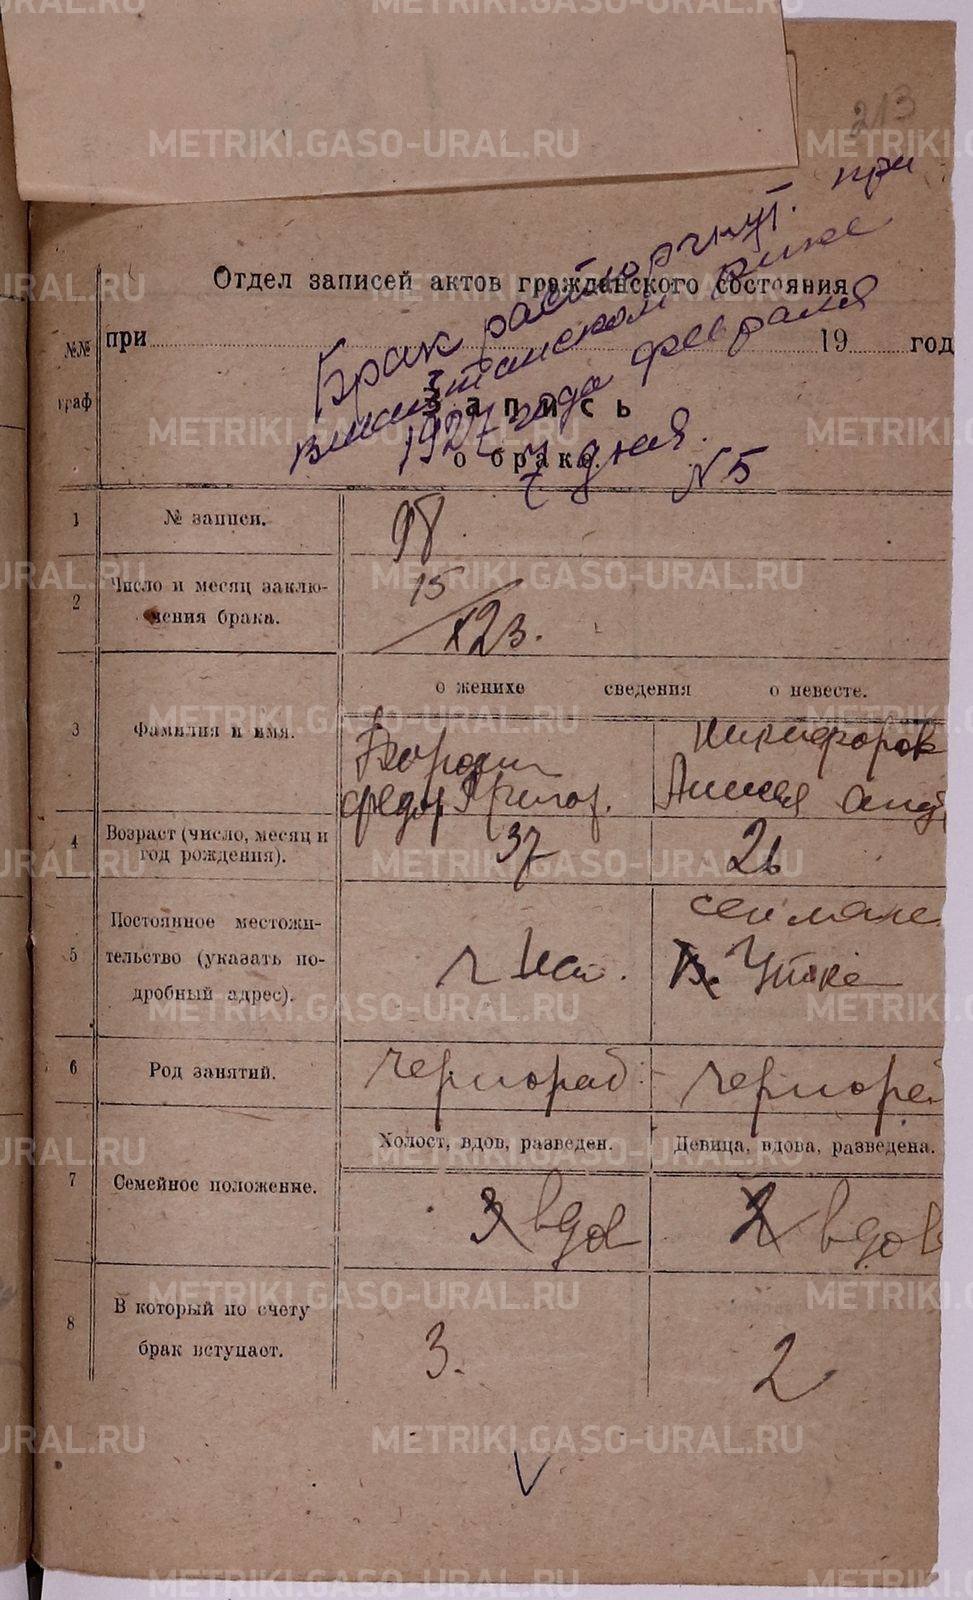 METRIKI.GASO-URAL.RU
213
Брак расторгнут. при
Отдел записей актов гражданского состояния
при 19 год
1927 года февраля
7 дня.
№5
№№ граф
Запись
о браке.
1 № записи. 98
2 Число и месяц заключения брака. 15/X 23.
о женихе сведения о невесте.
3 Фамилия и имя.
Бородин
Федор Григор.
Никифоров
4 Возраст (число, месяц и год рождения). 37 26
5 Постоянное местожительство (указать подробный адрес).
В. Утке
6 Род занятий. Чернораб. Чернора
Холост, вдов, разведен. Девица, вдова, разведена.
7 Семейное положение. 3 вдов 2 вдов
8 В который по счету брак вступает. 3. 2
V